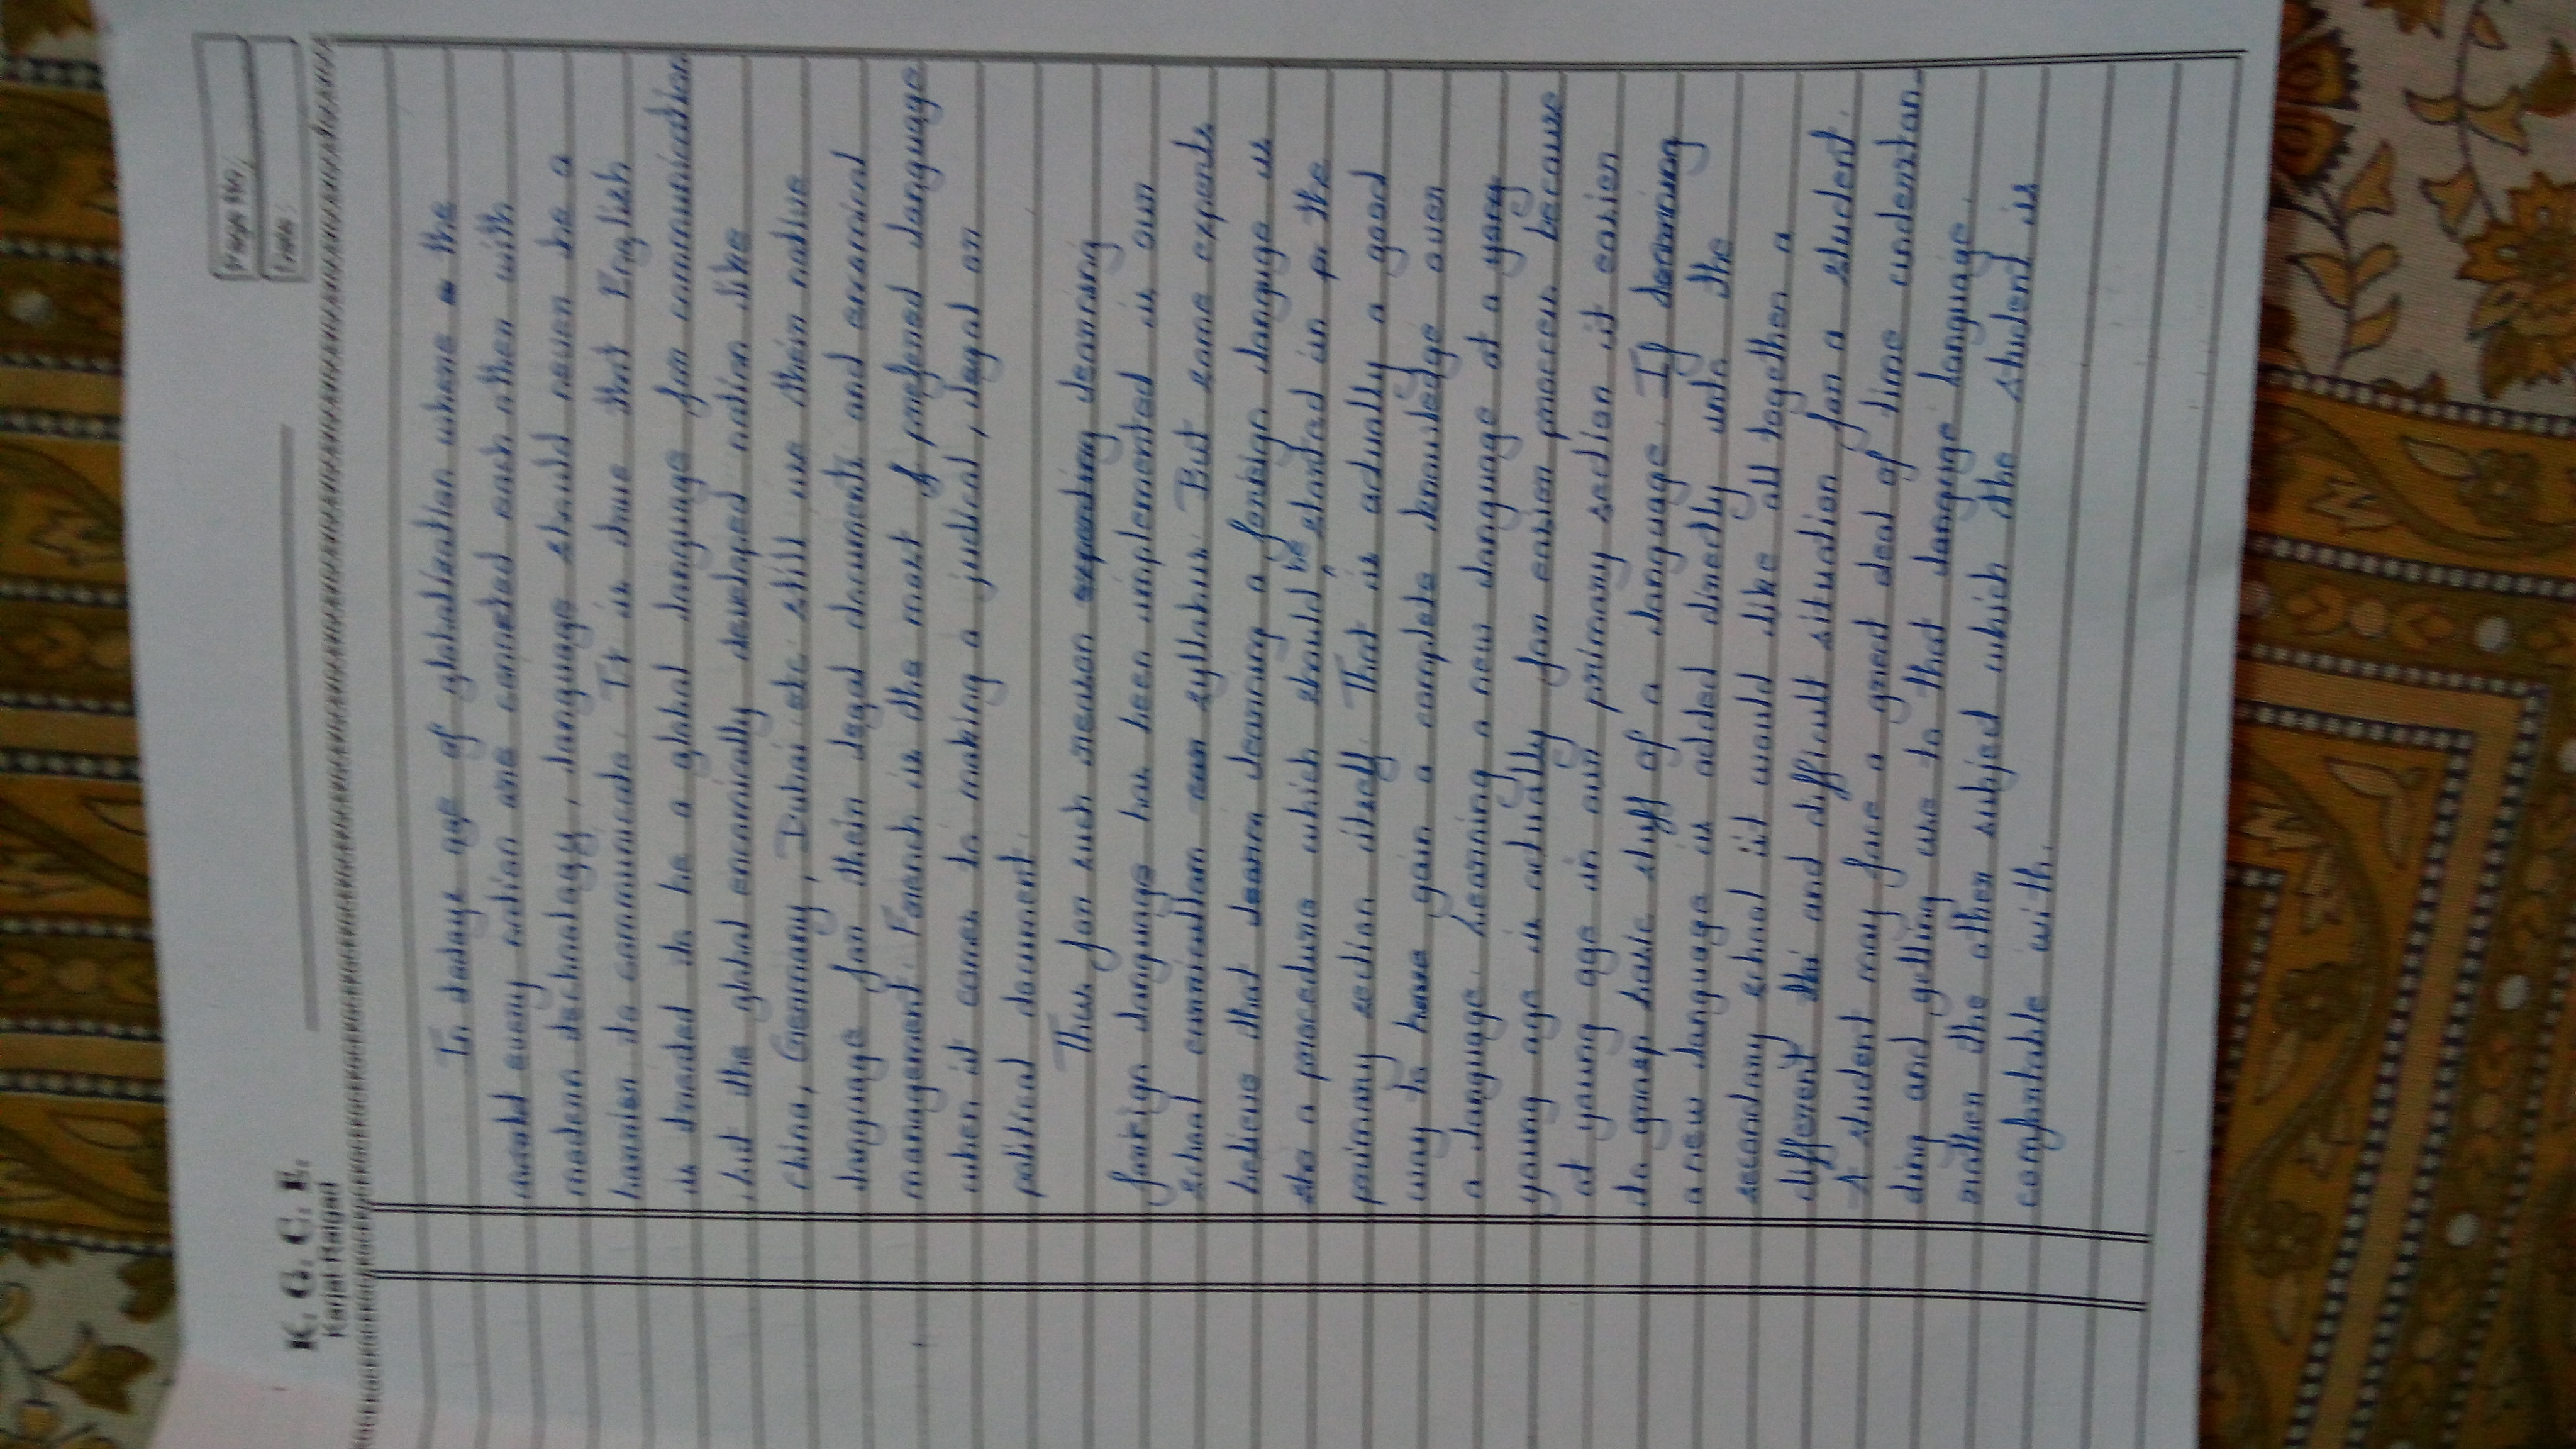 K. G. C. E.
Karjat Raigad
Page No.
Date:
In todays age of globalization where a the
world every nation are conneted each other with
modern technology, language should never be a
barrier to communicate. It is true that English
is treated to be a global language for communication
but the global encomically developed nation like
china, Germany, Dubai etc. still use their native
language for their legal documents and ecnomical
management. French is the most of preferred language
when it comes to making a judical, legal or
political document.
Thus for such reason learning
foreign language has been implemented in our
school curricullam syllabus. But some experts
believe that learning a foreign language is
a procedure which should be started in the
primary section itself. That is actually a good
way to gain a complete knowledge over
a language. Learning a new language at a
young age is actually far easier process because
at young age in our primary section it easier
to grasp basic stuff of a language. If learning
a new language is added directly into the
secondary school it would like all together a
different and difficult situation for a student.
A student may face a great deal of time understan-
ding and getting use to that language
rather the other subject which the student is
comfortable with.